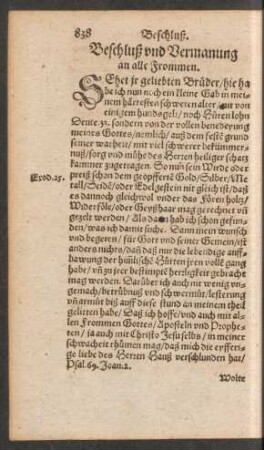 838 Beschluß.
Beschluß vnd Vermanung
an alle Frommen.
SEhet jr geliebten Brüder/hie ha
be ich nun noch ein kleine Gab in mei
nem härtesten schweren alter/ nit von
einigem hundsgelt/ noch Hüren lohn
Deute. 23. sondern von der vollen benedeyung
meines Gottes/nemlich/ auß dem fässt grund
seiner warheit/ mit viel schwerer bekümmer-
nuß/sorg vnd mühe des Herren heiliger schatz
kammer zugetragen. So nun sein Wirde oder
preiß schon dem geopfferte Gold/Silber/ Me
tall/Seide/ oder Edelgestein nit gleich ist/daß
Exod. 25. es dannoch gleichwol vnder das Fören holtz/
Widerföle/ oder Geyßhaar mag gerechnet vñ
gezelt werden/ Als dann hab ich schon gefun-
den/was ich damit suche. Dann mein wunsch
vnd begeren/ für Gott vnd seiner Gemein/ist
anders nichts/daß daß nur die lebendige auff-
bawung der himlische Hütten jren volle gang
habe/ vñ zu jrer bestimpte herzligkeit gebracht
mag werden. Darüber ich auch nit wenig vn-
gemach/betrübnuß vnd schwermüt/lesterung
vñ armüt biß auff diese stund an meinem theil
gelitten habe/ Daß ich hoffe/vnd auch mit al-
len Frommen Gottes/ Aposteln vnd Prophe-
ten/ ja auch mit Christo Jesu selbs/ in meiner
schwacheit rhümen mag/ daß mich die eyfferi-
ge liebe des Herren Hauß verschlunden hat/
Psal. 69. Joan. 2.
Wolte